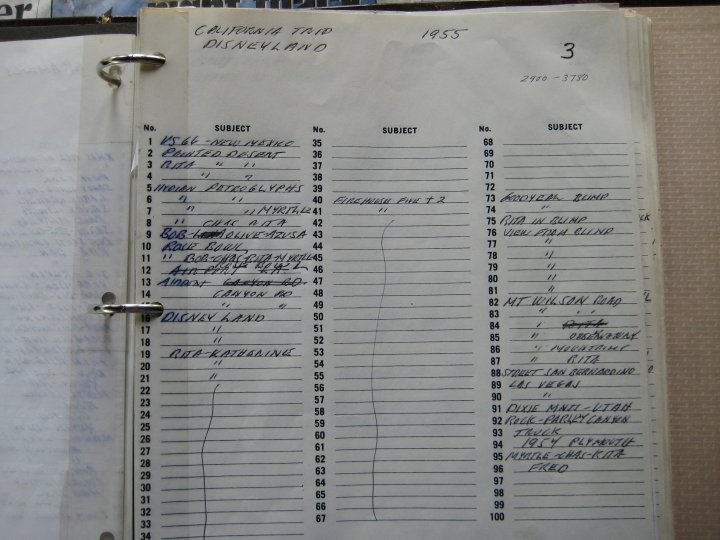 CALIFORNIA TRIP 1955
DISNEYLAND
3
2900 - 3780
No. SUBJECT
1 US 66 - NEW MEXICO
2 PAINTED DESERT
3 RITA " "
4 " "
5 INDIAN PETROGLYPHS
6 " "
7 " " MYRTLE
8 " CHAS RITA
9 BOB - OLIVE - AZUSA
10 ROSE BOWL
11 " BOB-CHAS-RITA-MYRTLE
12 AIRPORT LA
13 AIRPORT CANYON RD
14 CANYON RD
" "
16 DISNEYLAND
17 "
18 "
19 RITA-KATHERINE
20 "
21 "
22
23
24
25
26
27
28
29
30
31
32
33
34
No. SUBJECT
35
36
37
38
39
40 FIREHOUSE FIVE + 2
41 "
42
43
44
45
46
47
48
49
50
51
52
53
54
55
56
57
58
59
60
61
62
63
64
65
66
67
No. SUBJECT
68
69
70
71
72
73 GOODYEAR BLIMP
74 "
75 RITA IN BLIMP
76 VIEW FROM BLIMP
77 "
78 "
79 "
80 "
81 "
82 MT WILSON ROAD
83 " " "
84 " RITA
85 " OBSERVATORY
86 "
87 " RITA
88 STREET SAN BERNARDINO
89 LAS VEGAS
90 "
91 DIXIE MNTS - UTAH
92 ROCK - PARLEY CANYON
93 TRUCK
94 1954 PLYMOUTH
95 MYRTLE-CHAS-RITA
96 FRED
97
98
99
100